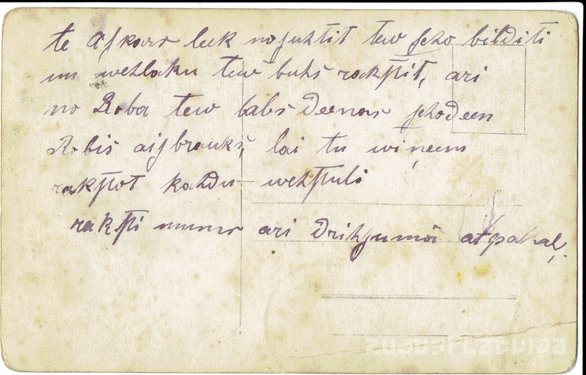 te Oskars leek nosuhtit tew scho bilditi
un wehlaku tew buhs rakstit, ari
no Roba tew labs deenas schodeen
Robis aisbrauks, lai tu wiņeem
rakstot kahdu wehstuli
raksti mums ari drihsumā atpakaļ.
zudusi latvija